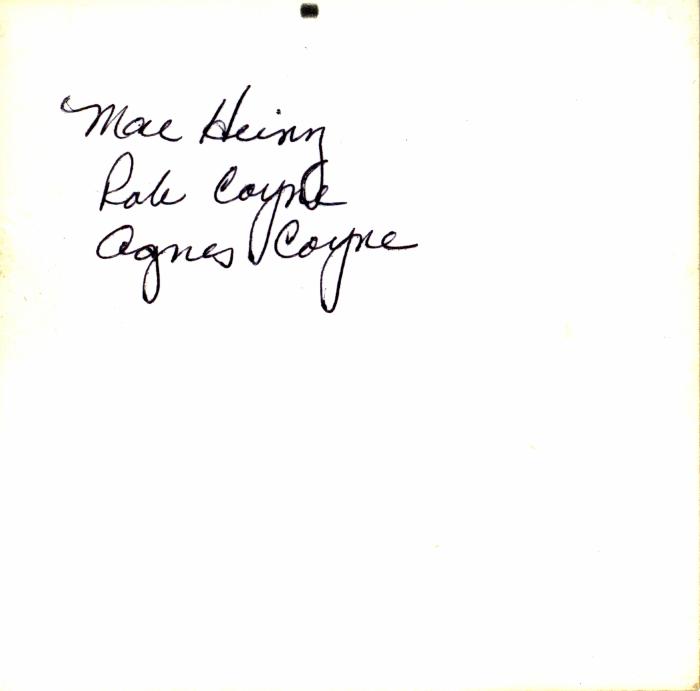 Mae Heinz
Coyne
Agnes Coyne